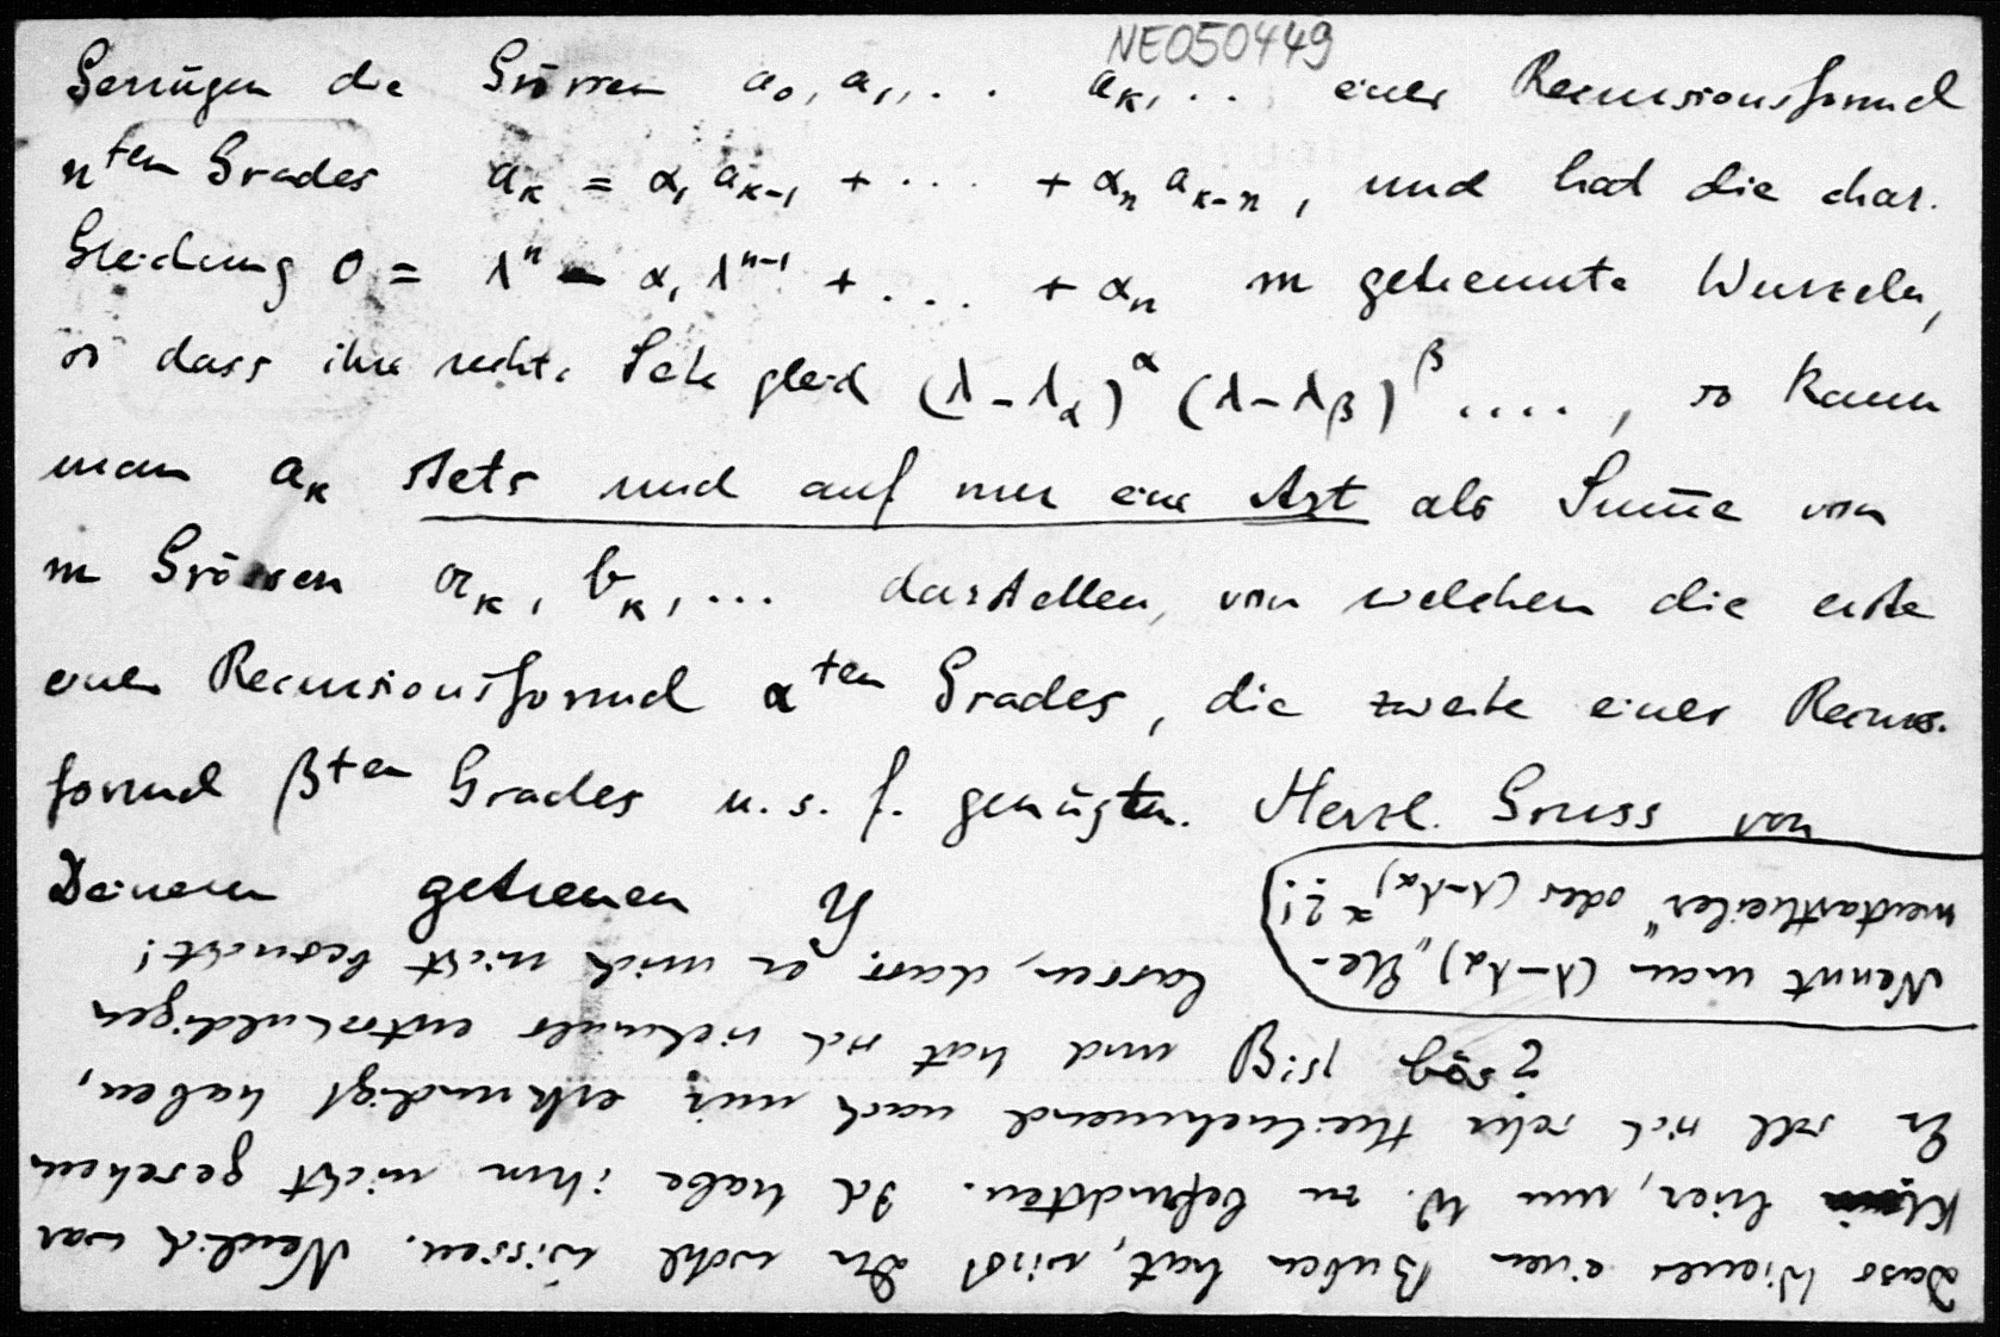 NE050449
Genügen die Grössen a₀, a₁, . . . aκ, . . einer Recursionsformel
nten Grades aκ = α₁ aκ₋₁ + . . . + αn aκ₋n, und hat die char.
Gleichung 0 = λⁿ - α₁ λⁿ⁻¹ + . . . + αn m getrennte Wurzeln,
so dass ihre rechte Seite gleich (λ-λα)^α (λ-λβ)^β . . . ., so kann
man aκ stets und auf nur eine Art als Sum̅e von
m Grössen 𝔞κ, 𝔟κ, ... darstellen, von welchen die erste
einer Recursionsformel αten Grades, die zweite einer Recurs.
formel βten Grades u. s. f. genügen. Herzl. Gruss von
Deinem getreuen Y
Dass Wiener einen Buben hat, wirst Du wohl wissen. Neulich war
Klein hier, um W. zu Ich habe ihn nicht gesehen
Er soll sich sehr theilnehmend nach mir erkundigt haben,
und hat sich vielmals entschuldigen
lassen, dass er mich nicht besucht!
Bist bös?
Nennt man (λ-λα) „Ele-
mentartheiler" oder (λ-λα)^α ?!